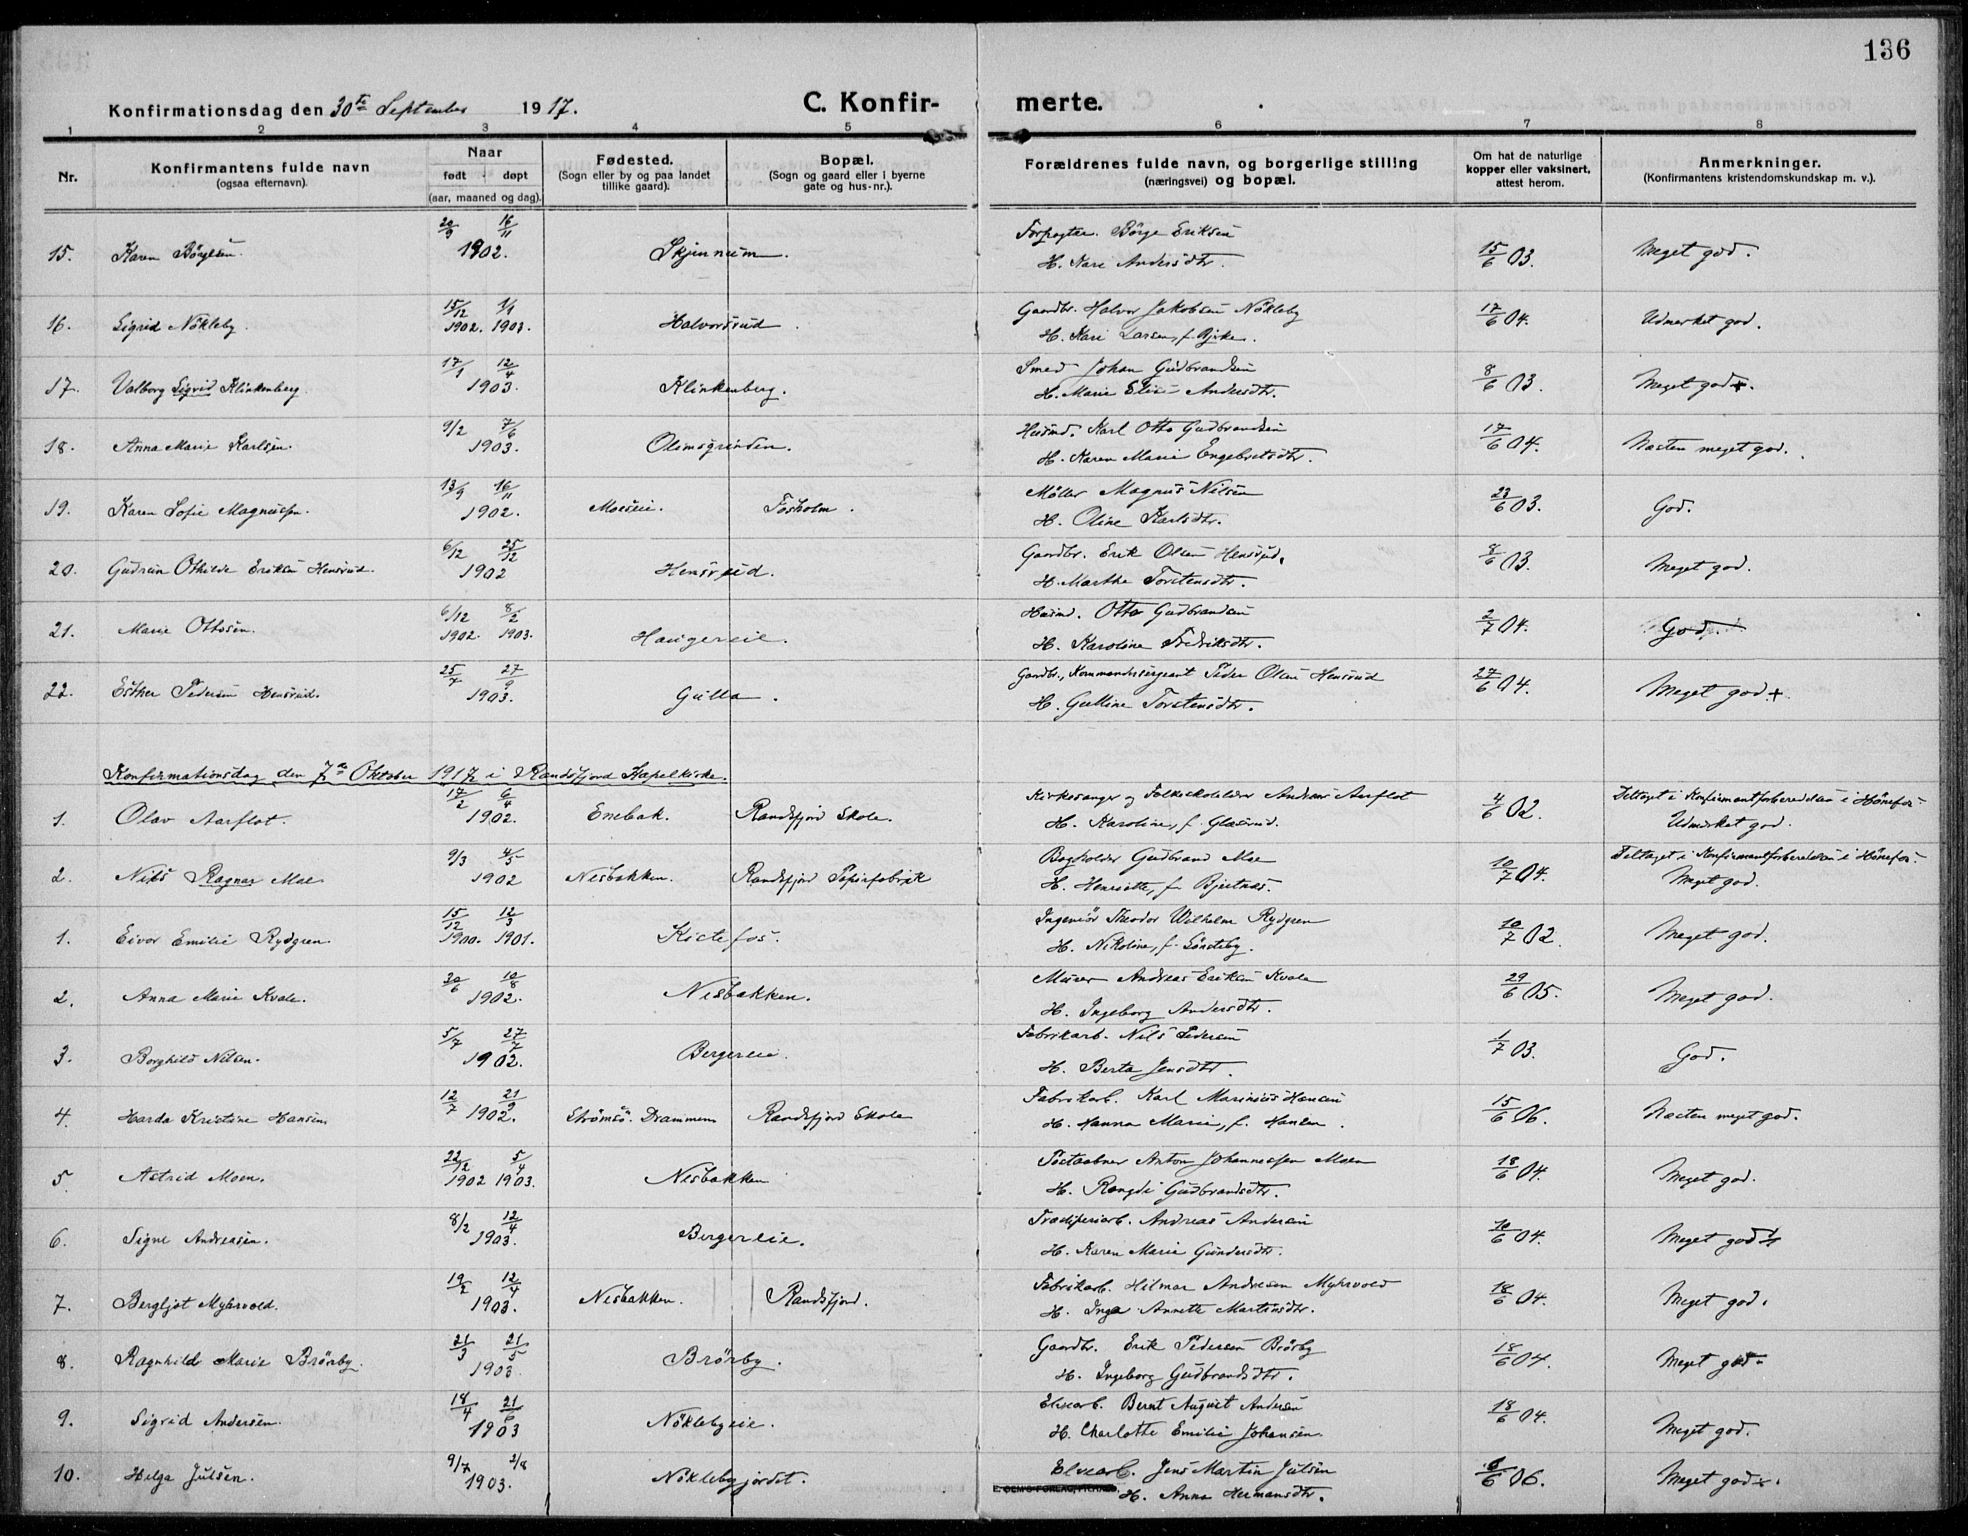 136
Konfirmationsdag den 30te September 1917. C. Konfir- merte.
1 2 3 4 5 6 7 8
Nr. Konfirmantens fulde navn (ogsaa efternavn). Naar født døpt (aar, maaned og dag). Fødested. (Sogn eller by og paa landet tillike gaard). Bopæl. (Sogn og gaard eller i byerne gate og hus-nr.). Forældrenes fulde navn, og borgerlige stilling (næringsvei) og bopæl. Om hat de naturlige kopper eller vaksinert, attest herom. Anmerkninger. (Konfirmantens kristendomskundskap m. v.).
20/9 16/11 Forpagter. Börge Eriksen
15. Karen Börgesen. 1902. Skjinneim. H. Kari Andersdtr. 15/6 03. Meget god.
15/12 1/1 Gaardbr. Halvor Jakobsen Nökleby
16. Sigrid Nökleby. 1902. 1903. Halvorsrud H. Kari Larsen, f. 17/6 04. Udmerket god.
17/1 12/4 Smed Johan Gudbrandsen
17. Valborg Sigrid Klinkenberg 1903. Klinkenberg. H. Marie Elise Andersdtr. 8/6 03. Meget god+.
9/2 7/6 Husmd. Karl Otto Gudbrandsen
18. Anna Marie Karlsen. 1903. Olimsgrinden. H. Karen Marie Engebretsdtr. 17/6 04. Næsten meget god.
13/9 16/11 Møller Magnus Nilsen
19. Karen Sofie Magnussen. 1902. Moeseie. Fosholm. H. Oline Karlsdtr. 23/6 03. God.
6/12 25/12 Gaardbr. Erik Olsen Hensrud.
20. Gudrun Othilde Eriksen Hensrud. 1902 Hensrud. H. Marthe Torstensdtr. 8/6 03. Meget god.
6/12 8/2 Husmd. Otto Gudbrandsen
21. Marie Ottosen. 1902. 1903. Haugereie. H. Karoline Fredriksdtr. 2/7 04. God.
25/7 27/9 Gardbr., Kommandersergeant Peder Olsen Hensrud
22. Esther Pedersen Hensrud. 1903. Gulla. H. Gulline Torstensdtr. 27/6 04. Meget god+.
Konfirmationsdag den 7de Oktober 1917 i Randsfjord Kapelkirke.
17/2 6/4 Kirkesanger og Folkeskolelærer Andreas Aarflot Deltaget i Konfirmantforberedelsen i Hönefos.
1. Olav Aarflot. 1902. Enebak. Randsfjord Skole. H. Karoline, f. Glæserud. 4/6 02. Udmerket god.
9/3 4/5 Bogholder Gudbrand Moe Deltaget i Konfirmantforberedelsen i Hönefos.
2. Nils Ragnar Moe 1902 Nesbakken. Randsfjord Papirfabrik H. Henriette, f. Bjertnæs. 10/7 04. Meget god.
15/12 12/3 Ingeniör Theodor Wilhelm Rydgren
1. Eivor Emilie Rydgren. 1900. 1901. Kistefos. H. Nikoline, f. Sönsteby. 10/7 02. Meget god.
20/6 10/8 Murer Andreas Eriksen Kvale
2. Anna Marie Kvale. 1902. Nesbakken. H. Ingeborg Andersdtr. 29/6 05. Meget god.
5/7 27/7 Fabrikarb. Nils Pedersen
3. Borghild Nilsen. 1902. Bergereie. H. Berta Jensdtr. 1/7 03. God.
12/7 21/9 Fabrikarb. Karl Marinius Hansen
4. Harda Kristine Hansen 1902. Strömsö. Drammen Randsfjord Skole H. Hanna Marie, f. Hansen. 15/6 06. Næsten meget god.
22/12 5/4 Postaabner Anton Johannessen Moen
5. Astrid Moen. 1902 1903. Nesbakken H. Rangdi Gudbrandsdtr. 18/6 04. Meget god.
8/2 12/4 Træsliperiarb. Andreas Andersen
6. Signe Andreasen. 1903. Bergereie. H. Karen Marie Gundersdtr. 10/6 04. Meget god+
19/2 12/4 Fabrikarb. Hilmar Andersen Myhrvold
7. Bergljot Myhrvold. 1903. Nesbakken. Randsfjord. H. Inga Annette Martinsdtr. 18/6 04. Meget god.
21/3 21/5 Gaardbr. Erik Pedersen Brörby
8. Ragnhild Marie Brörby. 1903. Brörby. H. Ingeborg Gudbrandsdtr. 18/6 04. Meget god.
18/4 21/6 Elvearb. Bernt August Andersen
9. Sigrid Andersen. 1903 Nöklebyeie. H. Charlotte Emilie Johansen. 18/6 04. Meget god.
9/7 2/8 Elvearb. Jens Martin Julsen
10. Helga Julsen. 1903. Nöklebyjordet. H. Anna Hermansdtr. 6/6 06. Meget god+.